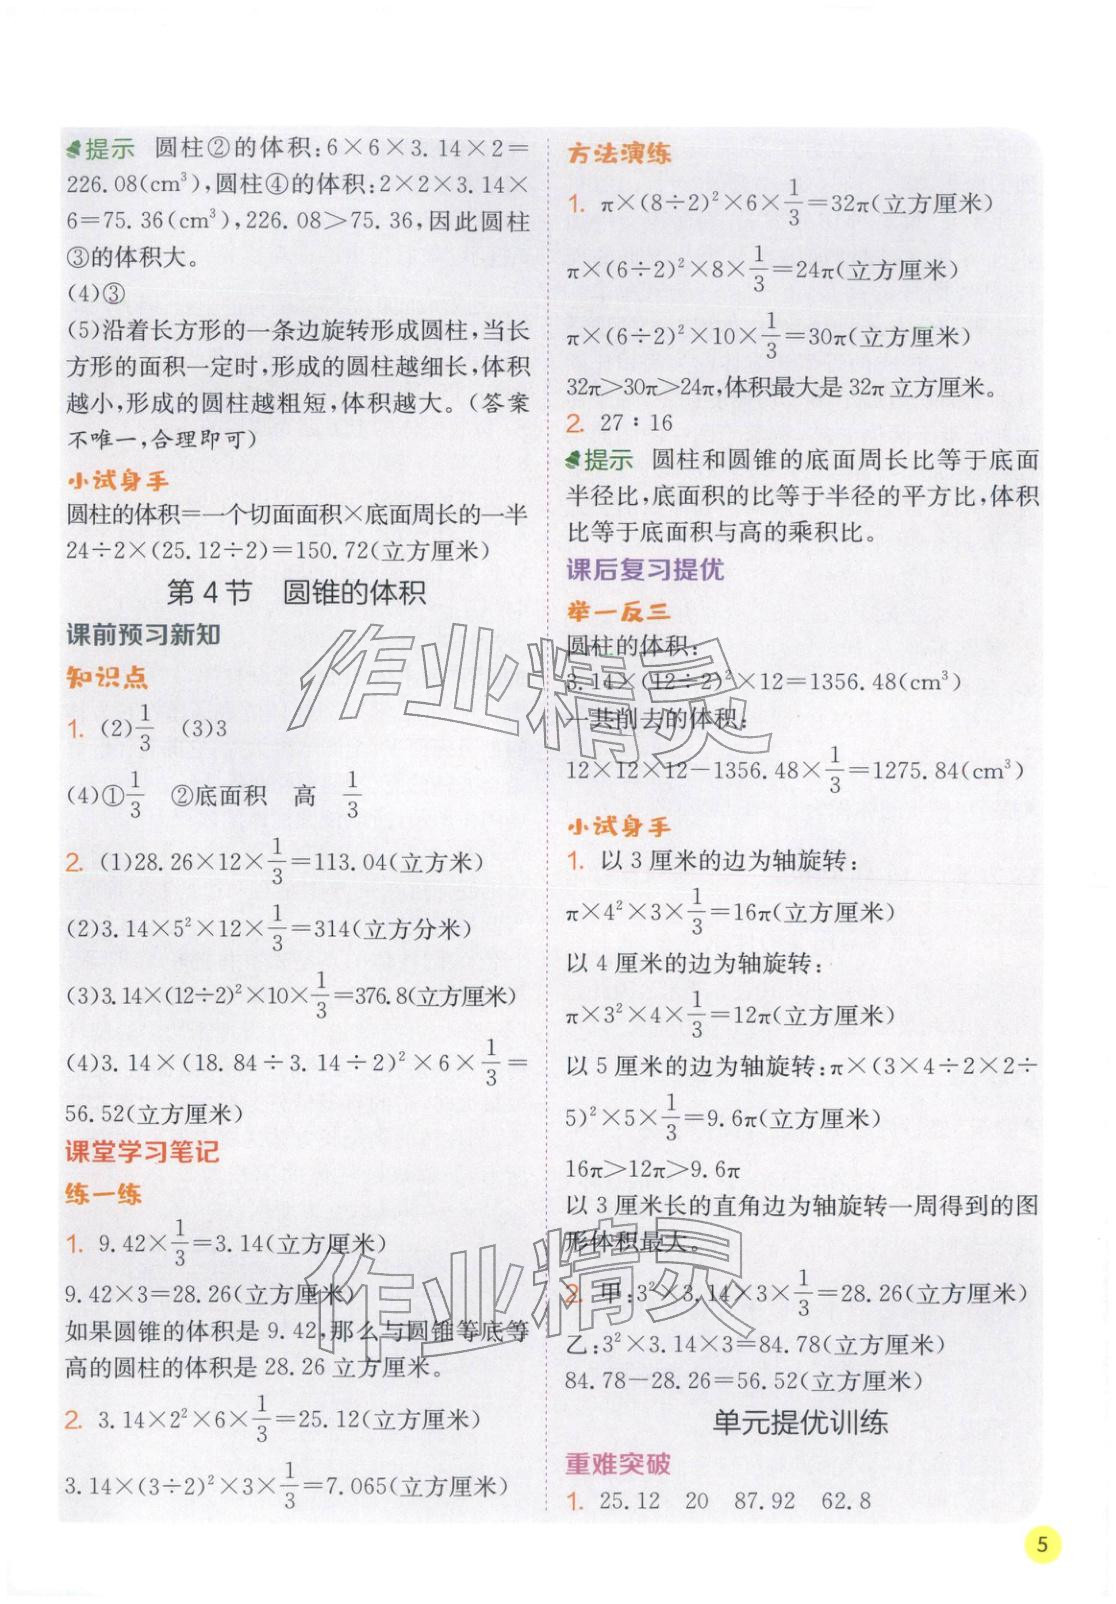 提示 圆柱②的体积:6×6×3.14×2=
226.08(cm³),圆柱④的体积:2×2×3.14×
6=75.36(cm³),226.08>75.36,因此圆柱
③的体积大。
(4)③
(5)沿着长方形的一条边旋转形成圆柱,当长
方形的面积一定时,形成的圆柱越细长,体积
越小,形成的圆柱越粗短,体积越大。(答案
不唯一,合理即可)
小试身手
圆柱的体积=一个切面面积×底面周长的一半
24÷2×(25.12÷2)=150.72(立方厘米)
第4节 圆锥的体积
课前预习新知
知识点
1. (2)1/3 (3)3
(4)①1/3 ②底面积 高 1/3
2. (1)28.26×12×1/3=113.04(立方米)
(2)3.14×5²×12×1/3=314(立方分米)
(3)3.14×(12÷2)²×10×1/3=376.8(立方厘米)
(4)3.14×(18.84÷3.14÷2)²×6×1/3=
56.52(立方厘米)
课堂学习笔记
练一练
1. 9.42×1/3=3.14(立方厘米)
9.42×3=28.26(立方厘米)
如果圆锥的体积是9.42,那么与圆锥等底等
高的圆柱的体积是28.26立方厘米。
2. 3.14×2²×6×1/3=25.12(立方厘米)
3.14×(3÷2)²×3×1/3=7.065(立方厘米)
方法演练
1. π×(8÷2)²×6×1/3=32π(立方厘米)
π×(6÷2)²×8×1/3=24π(立方厘米)
π×(6÷2)²×10×1/3=30π(立方厘米)
32π>30π>24π,体积最大是32π立方厘米。
2. 27:16
提示 圆柱和圆锥的底面周长比等于底面
半径比,底面积的比等于半径的平方比,体积
比等于底面积与高的乘积比。
课后复习提优
举一反三
圆柱的体积:
3.14×(12÷2)²×12=1356.48(cm³)
一共削去的体积:
12×12×12-1356.48×1/3=1275.84(cm³)
小试身手
1. 以3厘米的边为轴旋转:
π×4²×3×1/3=16π(立方厘米)
以4厘米的边为轴旋转:
π×3²×4×1/3=12π(立方厘米)
以5厘米的边为轴旋转:π×(3×4÷2×2÷
5)²×5×1/3=9.6π(立方厘米)
16π>12π>9.6π
以3厘米长的直角边为轴旋转一周得到的图
形体积最大。
2. 甲:3²×3.14×3×1/3=28.26(立方厘米)
乙:3²×3.14×3=84.78(立方厘米)
84.78-28.26=56.52(立方厘米)
单元提优训练
重难突破
1. 25.12 20 87.92 62.8
5
作业精灵
作业精灵